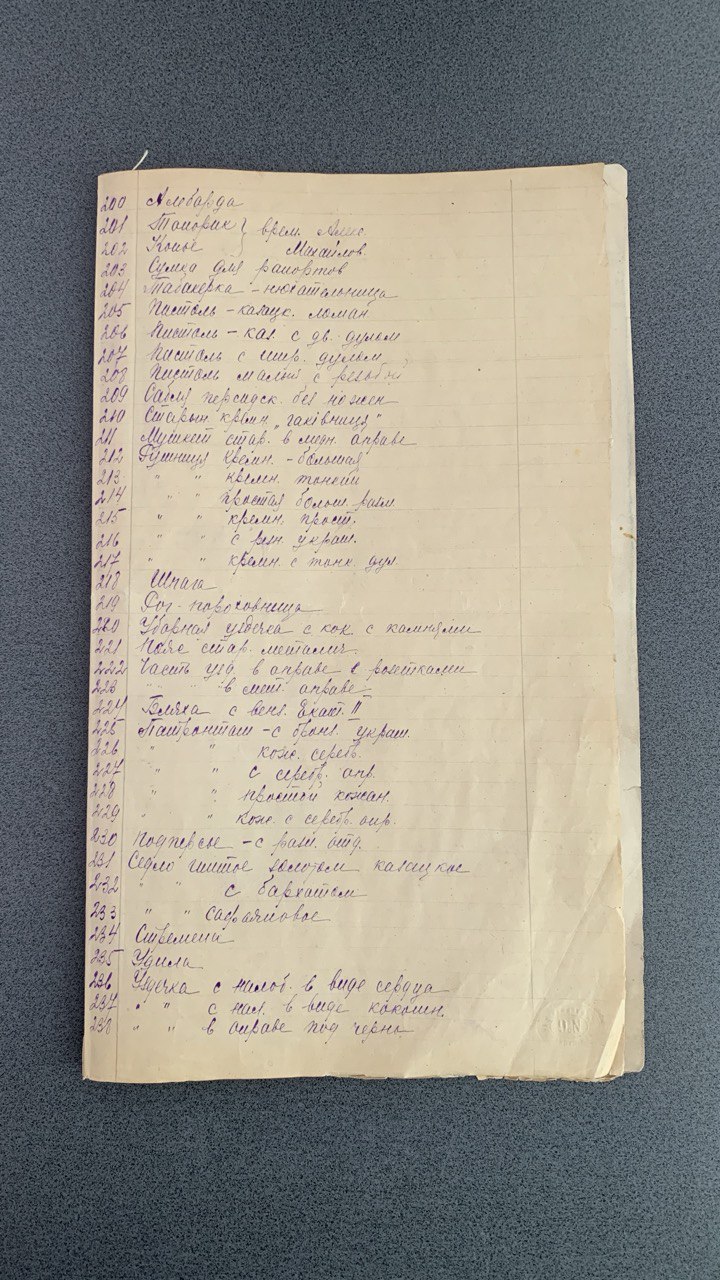 200 Алебарда
201 Топорик } врем. Алекс.
202 Копье } Михайлов.
203 Сумка для рапортов
204 Табакерка - нюхательница
205 Пистоль - казацк. ломан
206 Пистоль - каз. с дв. дулом
207 Пистоль с шир. дулом
208 Пистоль малый с резьбой
209 Сабля персидск. без ножен
210 Старин. кремн. „гаківниця"
211 Мушкет стар. в медн. оправе
212 Рушниця кремн. - большая
213 " " кремн. тонкий
214 " " простая больш. разм.
215 " " кремн. прост.
216 " " с рез. украш.
217 " " кремн. с тонк. дул
218 Шпага
219 Рог - пороховница
220 Уборная уздечка с кок. с камнями
221 Пояс стар. металич.
222 Часть узд. в оправе с розетками
223 " " в мет. оправе
224 Бляха с венз. Екат. II
225 Патронташ - с бронз. украш.
226 " " кож. серебр.
227 " " с серебр. опр.
228 " " простой кожан.
229 " " кож. с серебр. опр.
230 Подперсье - с разн. отд.
231 Седло шитое золотом казацкое
232 " " с бархатом
233 " " сафьяновое
234 Стремена
235 Удила
236 Уздечка с налоб. в виде сердца
237 " " с нал. в виде кокошн.
238 " " в оправе под черно